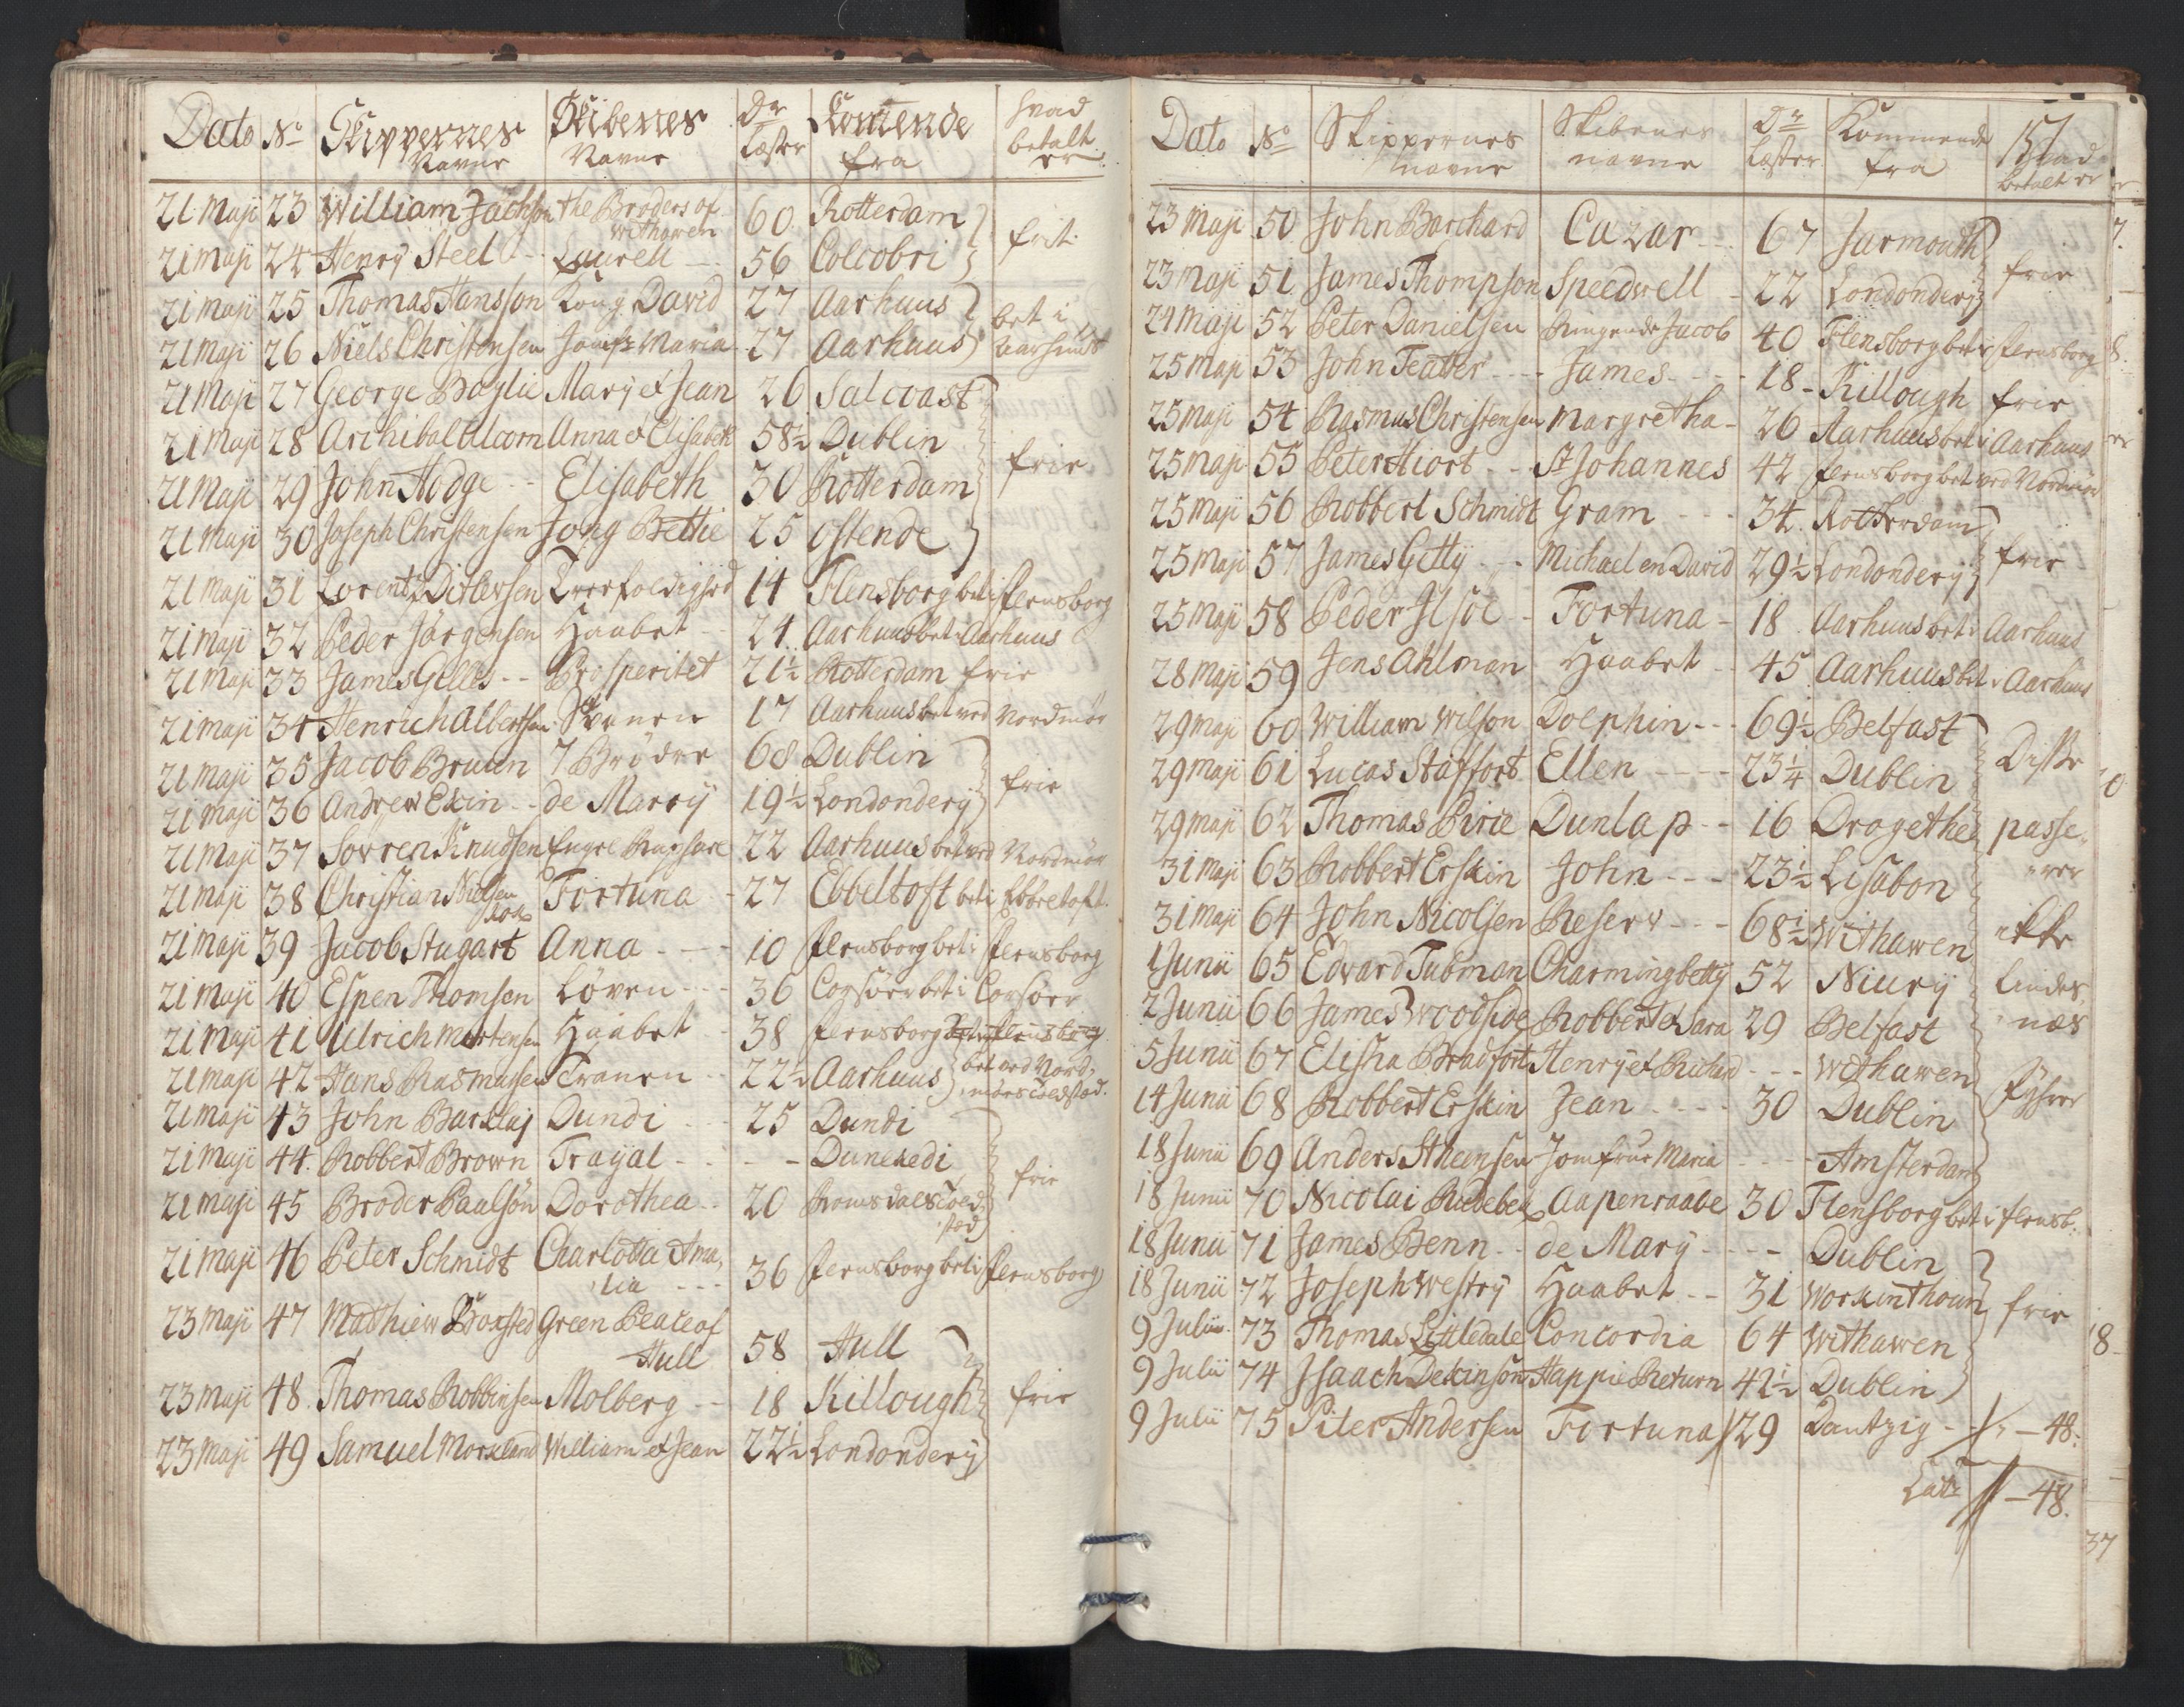 Dato No Skippernes Navne Skibenes Navne Dr. Læster Komende fra hvad betalt er
21 Maji 23 William Jachson the Broders of Withawen 60 Rotterdam
21 maji 24 Henry Steel Laurell 56 Colcobri frit
21 Maji 25 Thomas Hansson Kong David 27 Aarhuus
21 Maji 26 Niels Christensen Jomfr Maria 27 Aarhuus bet i Aarhuus
21 Maji 27 George Baylie Mary et Jean 26 Salcoast
21 Maji 28 Archibal Alcorn Anna et Elisabeth 58½ Dublin
21 Maji 29 John Hodge Elisabeth 30 Rotterdam frie
21 Maji 30 Joseph Christensen Jong Bettie 25 Ostende
21 Maji 31 Lorentz Ditlevsen Træfoldighed 14 Flensborg bet i Flensborg
21 Maji 32 Peder Jørgensen Haabet 24 Aarhuus bet i Aarhuus
21 Maji 33 James Gelles Prosperitet 21½ Rotterdam frie
21 Maji 34 Henrich Albertsen Svanen 17 Aarhuus bet ved Nordmør
21 Maji 35 Jacob Bruun 7 Brødre 68 Dublin
21 Maji 36 Andrew Ekin de Marry 19½ Londondery frie
21 Maji 37 Sørren Knudsen Engel Raphael 22 Aarhuus bet ved Nordmør
21 Maji 38 Christian Nielsen Fortuna 27 Ebbeltoft bet i Ebbeltoft
21 Maji 39 Jacob Stugart Anna 10 Flensborg bet i Flensborg
21 Maji 40 Espen Thomsen Løven 36 Corsöer bet i Corsöer
21 Maji 41 Ulrich Mortensen Haabet 38 Flensborg bet i Flensborg
21 Maji 42 Hans Rasmussen Tranen 22½ Aarhuus bet ved Nordmørs Toldsted
21 Maji 43 John Barklaj Dundi 25 Dundi
21 Maji 44 Robbert Brown Trayal - Dunekedi frie
21 Maji 45 Broder Paulsøn Dorothea 20 Romsdals Toldsted
21 Maji 46 Peter Schmidt Charlotta Amalia 36 Flensborg bet i Flensborg
23 Maji 47 Mathiew Boxsted Green Peace of Hull 58 Hull
23 Maji 48 Thomas Robbinsen Molberg 18 Killough frie
23 Maji 49 Samuel Morkland William et Jean 22½ Londondery
Dato No Skippernes navne Skibenes navne Dr. Læster Kommende fra Hvad betalt er
23 Maji 50 John Barchard Cazar 67 Jarmouth
23 Maji 51 James Thompson Speedwell 22 Londondery frie
24 Maji 52 Peter Danielsen Ringende Jacob 40 Flensborg bet i Flensborg
25 Maji 53 John Teater James 18 Killough frie
25 Maji 54 Rasmus Christensen Margretha 26 Aarhuus bet i Aarhuus
25 Maji 55 Peter Hiort St Johannes 42 Flensborg bet ved Nordmør
25 Maji 56 Robbert Schmidt Gram 34 Rotterdam
25 Maji 57 James Getty Michael en David 29½ Londondery frie
25 Maji 58 Peder Ilsöe Fortuna 18 Aarhuus bet i Aarhuus
28 Maji 59 Jens Ahlman Haabet 45 Aarhuus bet i Aarhuus
29 Maji 60 William Wilson Dolphin 69½ Belfast
29 Maji 61 Lucas Staffort Ellen 23¼ Dublin Disse
29 Maji 62 Thomas Pirie Dunlap 16 Drogethea passe-
31 Maji 63 Robbert Erskin John 23½ Lisabon rer
31 Maji 64 John Nicolsen Reserv 68½ Withawen ikke
1 Junii 65 Edvard Tubman Charming betty 52 Niury Lindes-
2 Junii 66 James Woodside Robbert et Sara 29 Belfast næs
5 Junii 67 Elisha Bradfort Henry et Richard - Withawen Fyhrer
14 Junii 68 Robbert Erskin Jean 30 Dublin
18 Junii 69 Anders Stheensen Jomfrue Maria - Amsterdam
18 Junii 70 Nicolai Rudebek Aapenraabe 30 Flensborg bet i Flensb.
18 Junii 71 James Benn de Mary - Dublin
18 Junii 72 Joseph Westry Haabet 31 Workinthoun frie
9 Julii 73 Thomas Littledale Concordia 64 Withawen
9 Julii 74 Isaach Dekinson Happie Return 42½ Dublin
9 Julii 75 Piter Andersen Fortuna 29 Dantzig - 48.
Lat. - 48.
37